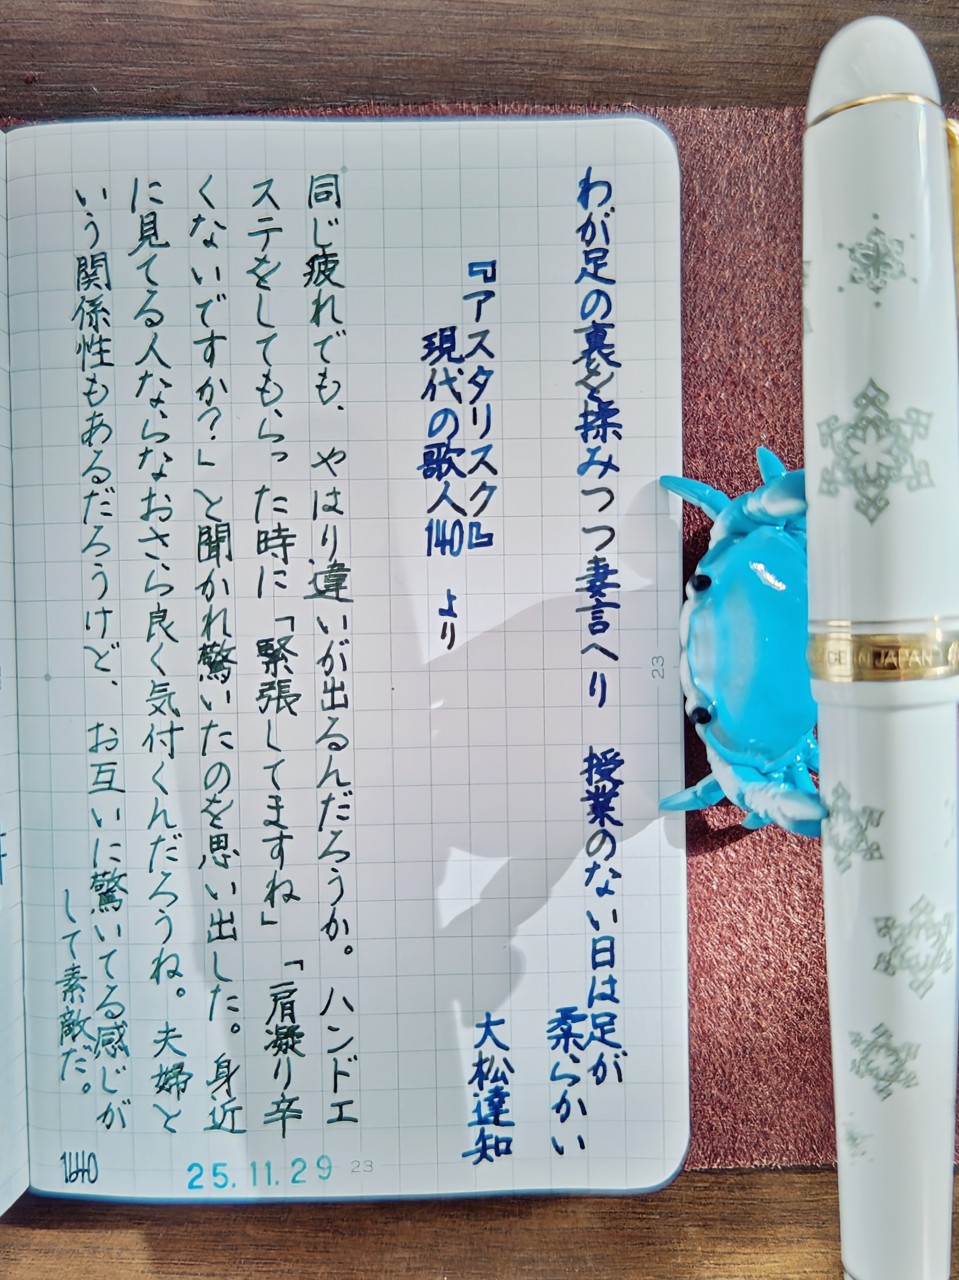 わが足の裏を揉みつつ妻言へり　授業のない日は足が
柔らかい
大松達知
『アスタリスク』
現代の歌人140　より
同じ疲れでも、やはり違いが出るんだろうか。ハンドエ
ステをしてもらった時に「緊張してますね」「肩凝り辛
くないですか？」と聞かれ驚いたのを思い出した。身近
に見てる人ならなおさら良く気付くんだろうね。夫婦と
いう関係性もあるだろうけど、お互いに驚いてる感じが
して素敵だ。
25.11.29
23
23
IN JAPAN